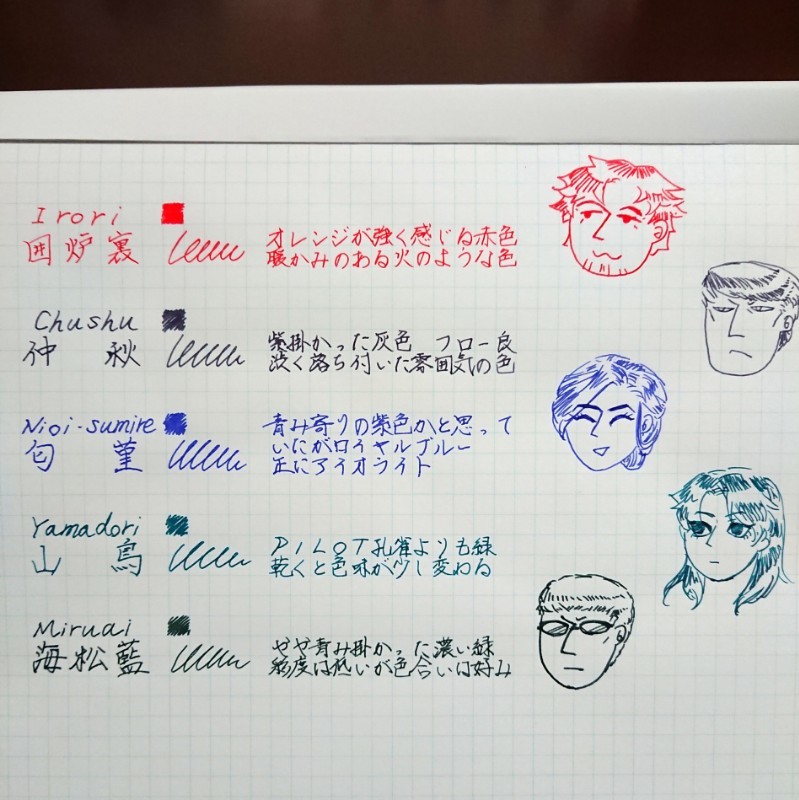 Irori
囲炉裏
オレンジが強く感じる赤色
暖かみのある火のような色
Chushu
仲秋
紫掛かった灰色 フロー良
渋く落ち付いた雰囲気の色
Nioi-sumire
匂菫
青み寄りの紫色かと思って
いたがロイヤルブルー
正にアイオライト
Yamadori
山鳥
PILOT孔雀よりも緑
乾くと色味が少し変わる
Miruai
海松藍
やや青み掛かった濃い緑
粘度は低いが色合いは好み